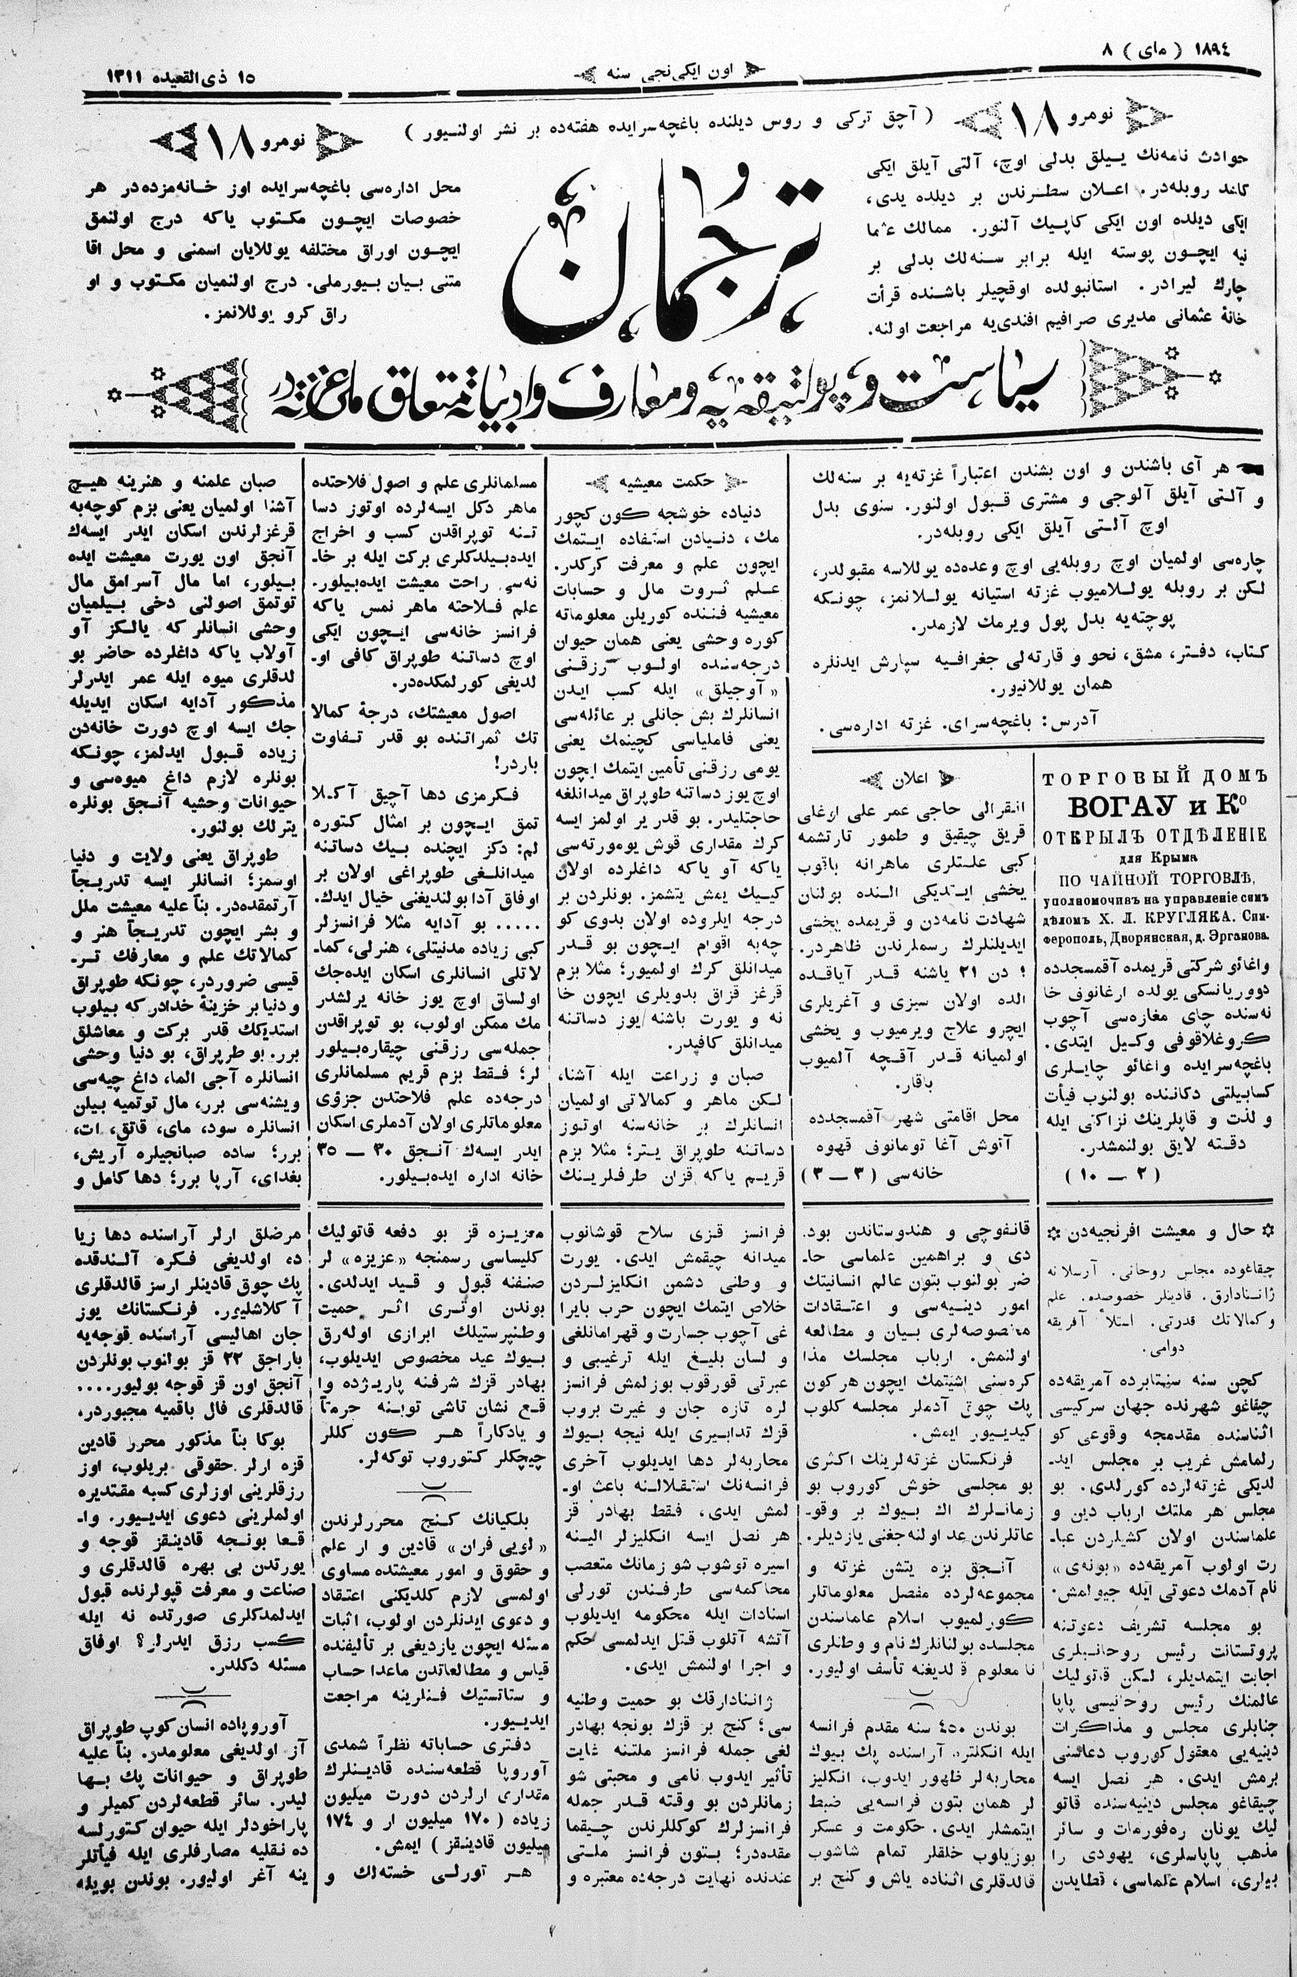 ١٨٩٤ ( مای ) ٨
اون ایکی نجی سنه
١٥ ذی القعیده ١٣١١
نومرو ١٨
( آچق ترکی و روس دیلنده باغچه سرایده هفته ده بر نشر اولنیور )
نومرو ١٨
حوادث نامه نك ییلق بدلی اوچ، آلتی آیلق ایکی
كاغد روبله در. اعلان سطرندن بر دیلده یدی،
ایکی دیلده اون ایکی کاپیك آلنور. ممالك عثما
نیه ایچون پوسته ایله برابر سنه لك بدلی بر
چارك لیرادر. استانبولده اوقچیلر باشنده قرأت
خانۀ عثمانی مدیری صرافیم افندی یه مراجعت اولنه.
ترجمان
محل اداره سی باغچه سرایده اوز خانه مزده در هر
خصوصات ایچون مکتوب یاکه درج اولنمق
ایچون اوراق مختلفه یوللایان اسمنی و محل اقا
متنی بیان بیورملی. درج اولنمیان مکتوب و او
راق کرو یوللانمز.
سیاست و پولتیقه یه و معارف و ادبیاته متعلق ملی غزته در
هر آی باشندن و اون بشندن اعتباراً غزته یه بر سنه لك
و آلتی آیلق آلوجی و مشتری قبول اولنور. سنوی بدل
اوچ آلتی آیلق ایکی روبله در.
چاره سی اولمیان اوچ روبله یی اوچ وعده ده یوللاسه مقبولدر،
لکن بر روبله یوللامیوب غزته استیانه یوللانمز، چونکه
پوچته یه بدل پول ویرمك لازمدر.
کتاب، دفتر، مشق، نحو و قارته لی جغرافیه سپارش ایدنلره
همان یوللانیور.
آدرس: باغچه سرای. غزته اداره سی.
ТОРГОВЫЙ ДОМЪ
ВОГАУ и Кº
ОТКРЫЛЪ ОТДѢЛЕНІЕ
для Крыма
ПО ЧАЙНОЙ ТОРГОВЛѢ,
уполномочивъ на управленіе симъ
дѣломъ Х. Л. КРУГЛЯКА. Сим-
ферополь, Дворянская, д. Эрганова.
واغائو شرکتی قریمده آقمسجدده
دووریانسکی یولده ارغانوف خا
نه سنده چای مغازه سی آچوب
کروغلاقوفی وکیل ایتدی.
باغچه سرایده واغائو چایلری
کسابیلتی دکاننده بولنوب فیأت
و لذت و قاپلرینك نزاکتی ایله
دقته لایق بولنمشدر.
( ٢ — ١٠ )
اعلان
انقرالی حاجی عمر علی اوغلی
قریق چیقیق و طمور تارتشمه
کبی علتلری ماهرانه باقوب
یخشی ایتدیکی النده بولنان
شهادت نامه دن و قریمده یخشی
ایدیلنلرك رسملرندن ظاهردر.
١ دن ٢١ یاشنه قدر آیاقده
الده اولان سیزی و آغریلری
ایچرو علاج ویرمیوب و یخشی
اولمیانه قدر آقچه آلمیوب
باقار.
محل اقامتی شهر آقمسجدده
آتوش آغا تومانوف قهوه
خانه سی ( ٣ — ٣ )
حکمت معیشیه
دنیاده خوشجه کون کچور
مك، دنیادن استفاده ایتمك
ایچون علم و معرفت کرکدر.
علم ثروت مال و حسابات
معیشیه فننده کوریلن معلوماته
کوره وحشی یعنی همان حیوان
درجه سنده اولوب رزقنی
«آوجیلق» ایله کسب ایدن
انسانلرك بش جانلی بر عائله سی
یعنی فاملیاسی کچینمك یعنی
یومی رزقنی تأمین ایتمك ایچون
اوچ یوز دساتنه طوپراق میدانلغه
حاجتلیدر. بو قدر یر اولمز ایسه
کرك مقداری قوش یومورته سی
یاکه آو یاکه داغلرده اولان
کییك یمش یتشمز. بونلردن بر
درجه ایلروده اولان بدوی کو
چه به اقوام ایچون بو قدر
میدانلق کرك اولمیور؛ مثلا بزم
قرغز قزاق بدویلری ایچون خا
نه و یورت باشنه یوز دساتنه
میدانلق کافیدر.
صبان و زراعت ایله آشنا،
لکن ماهر و کمالاتی اولمیان
انسانلرك بر خانه سنه اوتوز
دساتنه طوپراق یتر؛ مثلا بزم
قریم یاکه قزان طرفلرینك
مسلمانلری علم و اصول فلاحتده
ماهر دکل ایسه لرده اوتوز دسا
تنه توپراقدن کسب و اخراج
ایده بیلدکلری برکت ایله بر خا-
نه سی راحت معیشت ایده بیلور.
علم فلاحته ماهر نمس یاکه
فرانسز خانه سی ایچون ایکی
اوچ دساتنه طوپراق کافی او-
لدیغی کورلمکده در.
اصول معیشتك، درجۀ کمالا
تك ثمراتنده بو قدر تفاوت
باردر!
فکرمزی دها آچیق آکلا
تمق ایچون بر امثال کتوره
لم: دکز ایچنده بیك دساتنه
میدانلغی طوپراغی اولان بر
اوفاق آدا بولندیغنی خیال ایدك.
..... بو آدایه مثلا فرانسزلر
کبی زیاده مدنیتلی، هنرلی، کما-
لاتلی انسانلری اسکان ایده جك
اولساق اوچ یوز خانه یرلشدر
مك ممکن اولوب، بو توپراقدن
جمله سی رزقنی چیقاره بیلور
لر؛ فقط بزم قریم مسلمانلری
درجه ده علم فلاحتدن جزؤی
معلوماتلری اولان آدملری اسکان
ایدر ایسه ك آنجق ٣٠ — ٣٥
خانه اداره ایده بیلور.
صبان علمنه و هنرینه هیچ
آشنا اولمیان یعنی بزم کوچه به
قرغزلرندن اسکان ایدر ایسه ك
آنجق اون یورت معیشت ایده
بیلور، اما مال آسرامق مال
توتمق اصولنی دخی بیلمیان
وحشی انسانلر که یالکز آو
آولاب یاکه داغلرده حاضر بو
لدقلری میوه ایله عمر ایدرلر
مذکور آدایه اسکان ایدیله
جك ایسه اوچ دورت خانه دن
زیاده قبول ایدلمز، چونکه
بونلره لازم داغ میوه سی و
حیوانات وحشیه آنجق بونلره
یترلك بولنور.
طوپراق یعنی ولایت و دنیا
اوسمز؛ انسانلر ایسه تدریجاً
آرتمقده در. بنأ علیه معیشت ملل
و بشر ایچون تدریجاً هنر و
کمالاتك علم و معارفك تر-
قیسی ضروردر، چونکه طوپراق
و دنیا بر خزینۀ خدادر که بیلوب
استدیکك قدر برکت و معاشلق
برر. بو طرپراق، بو دنیا وحشی
انسانلره آجی الما، داغ چیه سی
ویشنه سی برر، مال توتمیه بیلن
انسانلره سود، مای، قاتق، ات،
برر؛ ساده صبانجیلره آریش،
بغدای، آرپا برر؛ دها کامل و
حال و معیشت افرنجیه دن
چیقاغوده مجلس روحانی. آرسلانه
ژاننادارق. قادینلر خصوصده. علم
و کمالاتك قدرتی. استلأ آفریقه
دوامی.
کچن سنه سینتابرده آمریقه ده
چیقاغو شهرنده جهان سرکیسی
اثناسنده مقدمجه وقوعی کو
رلمامش غریب بر مجلس اید-
لدیکی غزته لرده کورلدی. بو
مجلس هر ملتك ارباب دین و
علماسندن اولان کشیلردن عبا-
رت اولوب آمریقه ده «بونه ی»
نام آدمك دعوتی ایله جیولمش.
بو مجلسه تشریف دعوتنه
پروتستانت رئیس روحانیلری
اجابت ایتمدیلر، لکن قاتولیك
عالمنك رئیس روحانیسی پاپا
جنابلری مجلس و مذاکرات
دینیه یی معقول کوروب دعاسنی
برمش ایدی. هر نصل ایسه
چیقاغو مجلس دینیه سنده قاتو
لیك یونان ره فورمات و سائر
مذهب پاپاسلری، یهودی را
بیلری، اسلام علماسی، قطایدن
قانفوچی و هندوستاندن بود.
دی و براهمین علماسی حا-
ضر بولنوب بتون عالم انسانیتك
امور دینیه سی و اعتقادات
مخصوصه لری بیان و مطالعه
اولنمش. ارباب مجلسك مذا
کره سنی اشیتمك ایچون هر کون
پك چوق آدملر مجلسه کلوب
کیدیور ایمش.
فرنکستان غزته لرینك اکثری
بو مجلسی خوش کوروب بو
زمانلرك اك بیوك بر وقو-
عاتلرندن عد اولنه جغنی یازدیلر.
آنجق بزه یتشن غزته و
مجموعه لرده مفصل معلوماتلر
کورلمیوب اسلام علماسندن
مجلسده بولنانلرك نام و وطنلری
نامعلوم قلدیغنه تأسف اولیور.
بوندن ٤٥٠ سنه مقدم فرانسه
ایله انکلتره آراسنده پك بیوك
محاربه لر ظهور ایدوب، انکلیز
لر همان بتون فرانسه یی ضبط
ایتمشلر ایدی. حکومت و عسکر
بوزیلوب خلقلر تمام شاشوب
قالدقلری اثناده یاش و کنج بر
فرانسز قزی سلاح قوشانوب
میدانه چیقمش ایدی. یورت
و وطنی دشمن انکلیزلردن
خلاص ایتمك ایچون حرب بایرا
غی آچوب جسارت و قهرمانلغی
و لسان بلیغ ایله ترغیبی و
عبرتی قورقوب بوزلمش فرانسز
لره تازه جان و غیرت بروب
قزك تدابیری ایله نیجه بیوك
محاربه لر دها ایدیلوب آخری
فرانسه نك استقلالنه باعث او-
لمش ایدی، فقط بهادر قز
هر نصل ایسه انکلیزلر الینه
اسیره توشوب شو زمانك متعصب
محاکمه سی طرفندن تورلی
اسنادات ایله محکومه ایدیلوب
آتشه آتلوب قتل ایدلمسی حکم
و اجرا اولنمش ایدی.
ژاننادارقك بو حمیت وطنیه
سی؛ کنج بر قزك بونجه بهادر
لغی جمله فرانسز ملتنه غایت
تأثیر ایدوب نامی و محبتی شو
زمانلردن بو وقته قدر جمله
فرانسزلرك کوکللرندن چیقما
مقده در؛ بتون فرانسز ملتی
عندنده نهایت درجه ده معتبره و
معزیزه قز بو دفعه قاتولیك
کلیساسی رسمنجه «عزیزه» لر
صنفنه قبول و قید ایدلدی.
بوندن اوتری اثر حمیت
وطنپرستیلك ابرازی اوله رق
بیوك عید مخصوص ایدیلوب،
بهادر قزك شرفنه پاریژده وا
قع نشان تاشی توبینه حرمتاً
و یادکاراً هر کون کللر
چیچکلر کتوروب توکه لر.
بلکیانك کنج محررلرندن
«لویی فران» قادین و ار علم
و حقوق و امور معیشتده مساوی
اولمسی لازم کلدیکنی اعتقاد
و دعوی ایدنلردن اولوب، اثبات
مسئله ایچون یازدیغی بر تألیفنده
قیاس و مطالعاتدن ماعدا حساب
و ستاتستیك فنلرینه مراجعت
ایدیور.
دفتری حساباته نظراً شمدی
آوروپا قطعه سنده قادینلرك
مقداری ارلردن دورت میلیون
زیاده ( ١٧٠ میلیون ار و ١٧٤
میلیون قادینقز ) ایمش.
هر تورلی خسته لك و
مرضلق ارلر آراسنده دها زیا
ده اولدیغی فکره آلندقده
پك چوق قادینلر ارسز قالدقلری
آکلاشلیور. فرنکستانك یوز
جان اهالیسی آراسنده قوجه یه
باراجق ٢٢ قز بولنوب بونلردن
آنجق اون قز قوجه بولیور....
قالدقلری قال باقمیه مجبوردر،
بوکا بنأ مذکور محرر قادین
قزه ارلر حقوقی بریلوب، اوز
رزقلرینی اوزلری کسبه مقتدیره
اولملرینی دعوی ایدیور. وا-
قعا بونجه قادینقز قوجه و
یورتدن بی بهره قالدقلری و
صناعت و معرفت قپولرنده قبول
ایدلمدکلری صورتده نه ایله
کسب رزق ایدرلر؟ اوفاق
مسئله دکلدر.
آوروپاده انسان کوپ طوپراق
آز اولدیغی معلومدر. بنأ علیه
طوپراق و حیوانات پك بها
لیدر. سائر قطعه لردن کمیلر و
پاراخودلر ایله حیوان کتورلسه
ده نقلیه مصارفلری ایله فیأتلر
ینه آغر اولیور. بوندن بویله